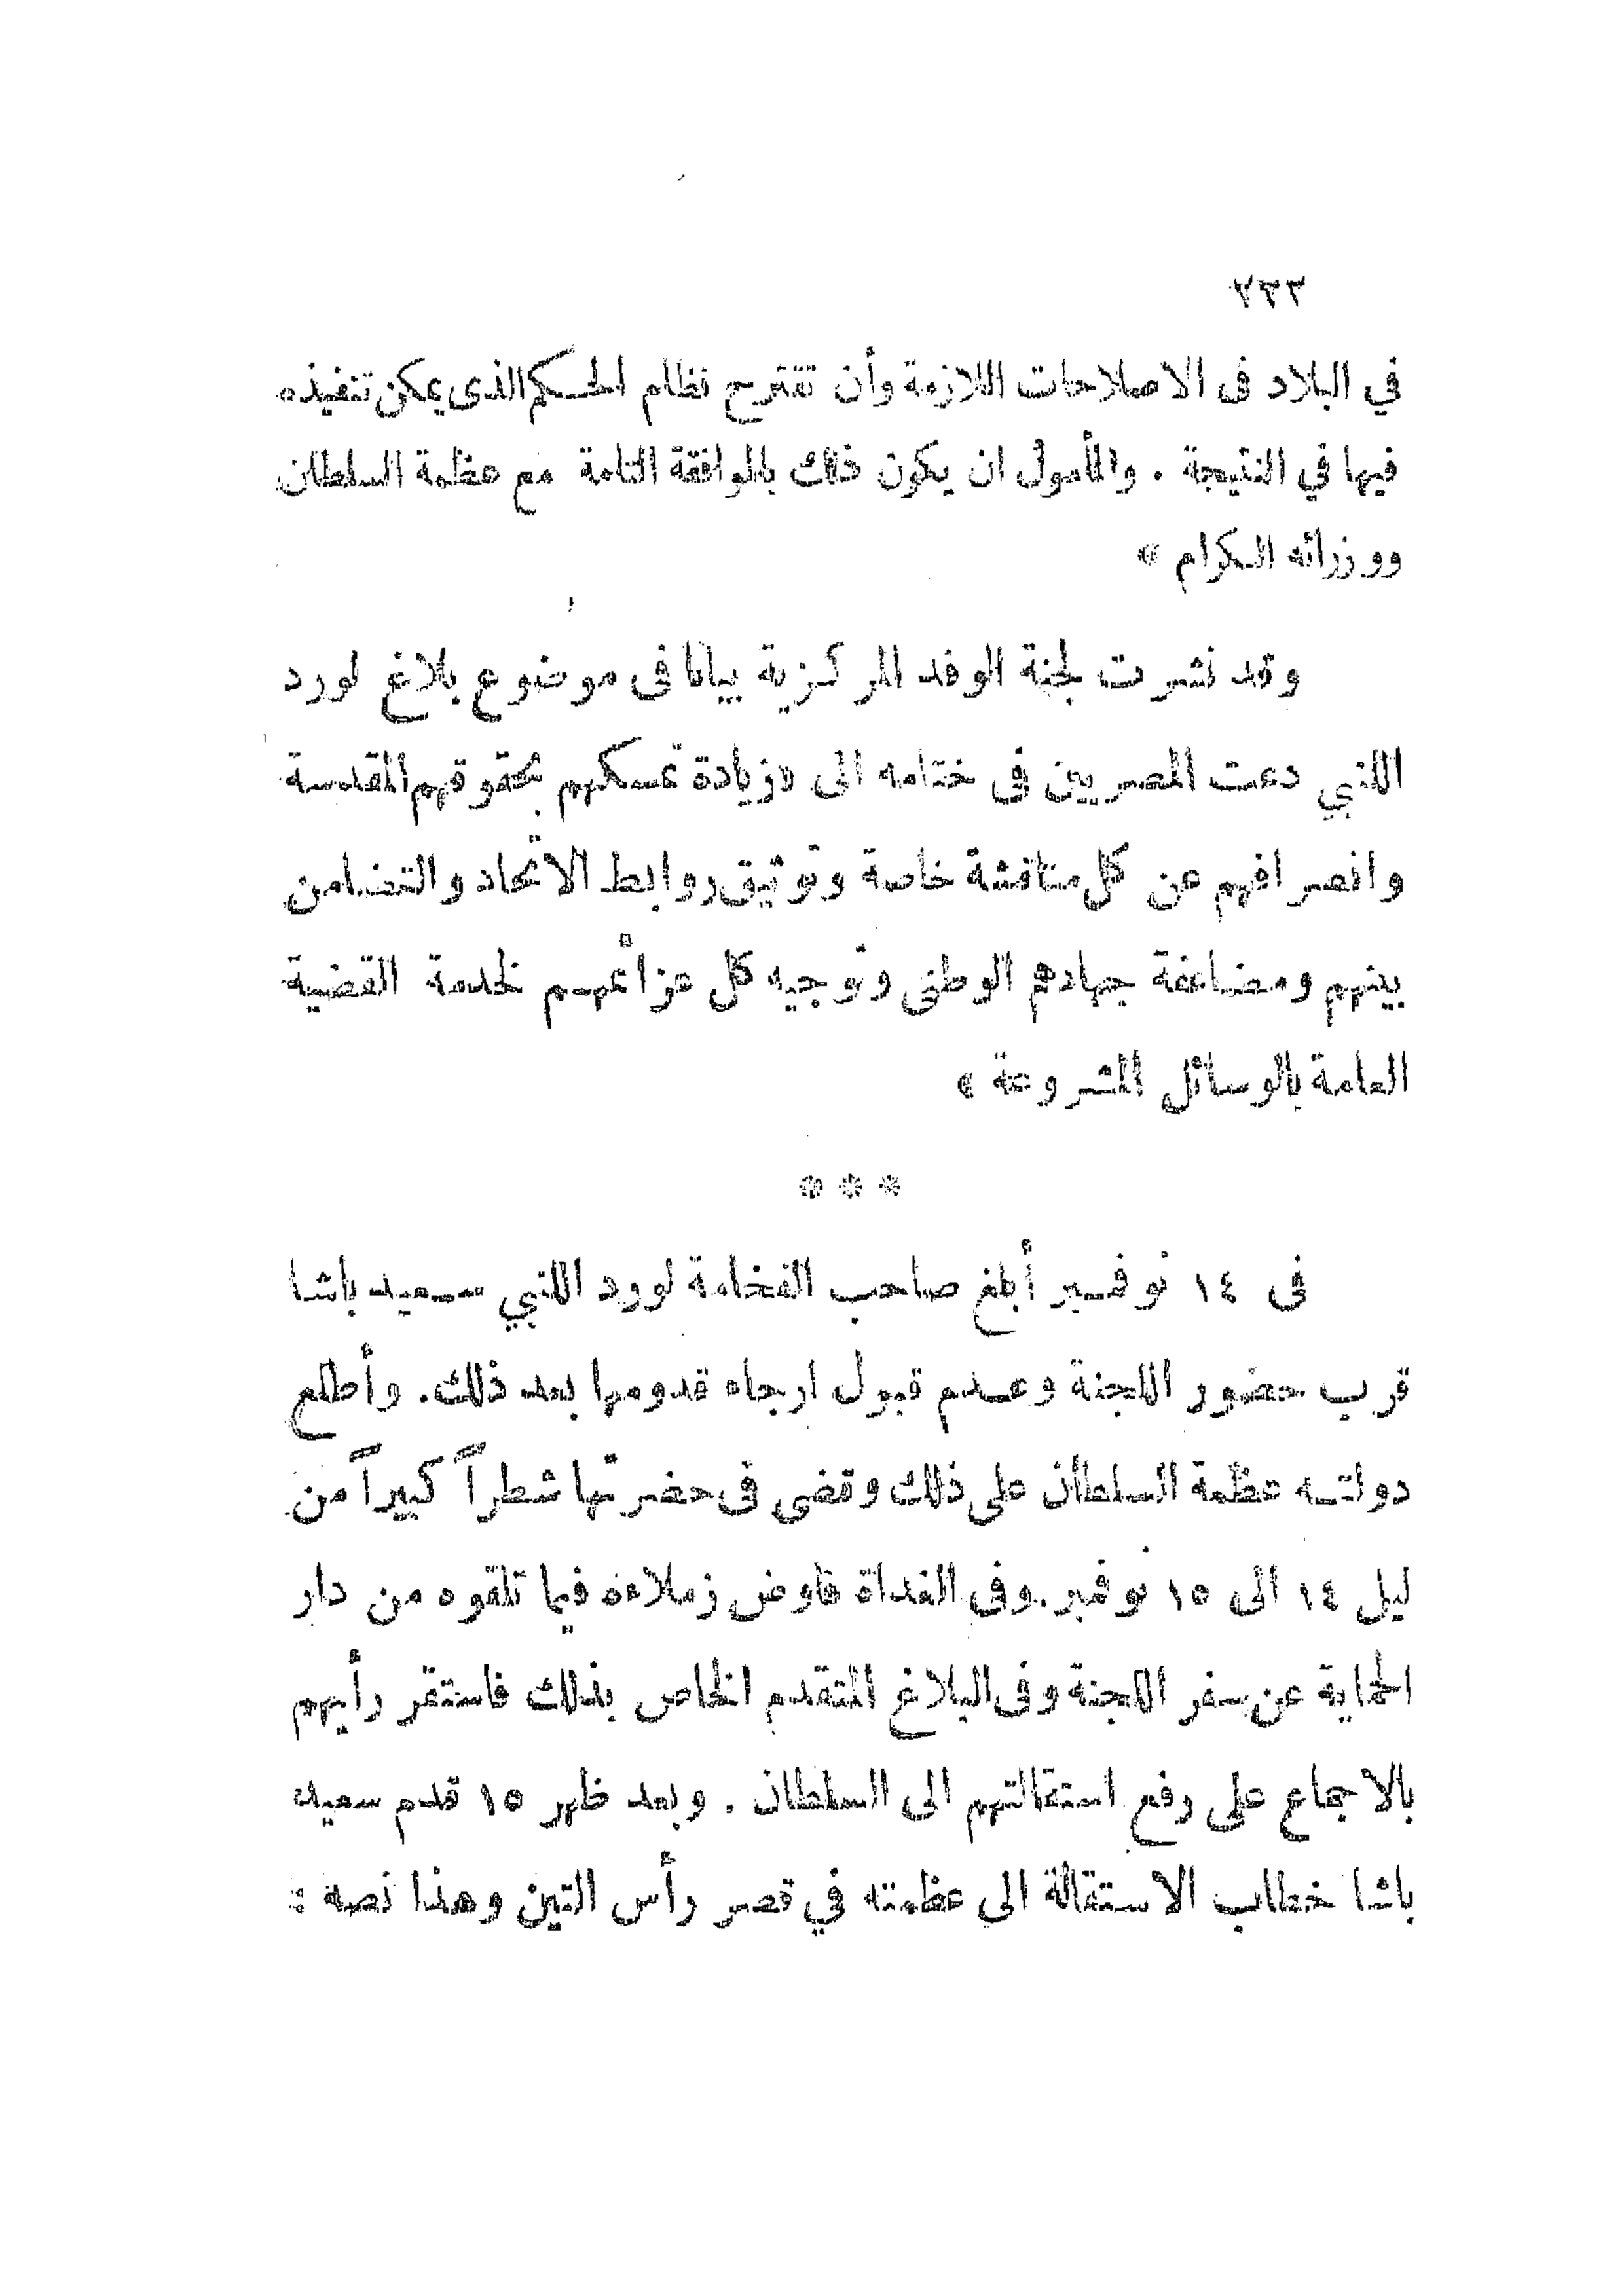 ٢٣٣
في البلاد فى الاصلاحات اللازمة وأن تقترح نظام الحكم الذى يمكن تنفيذه
فيها في النتيجة . والمأمول ان يكون ذلك بالموافقة التامة مع عظمة السلطان
ووزرائه الكرام »
وقد نشرت لجنة الوفد المركزية بيانا فى موضوع بلاغ لورد
اللنبي دعت المصريين فى ختامه الى «زيادة تمسكهم بحقوقهم المقدسة
وانصرافهم عن كل مناقشة خاصة وتوثيق روابط الاتحاد والتضامن
بينهم ومضاعفة جهادهم الوطنى وتوجيه كل عزائمهم لخدمة القضية
العامة بالوسائل المشروعة »
* * *
فى ١٤ نوفمبر أبلغ صاحب الفخامة لورد اللنبي سعيد باشا
قرب حضور اللجنة وعدم قبول ارجاء قدومها بعد ذلك. وأطلع
دولته عظمة السلطان على ذلك وقضى فى حضرتها شطراً كبيراً من
ليل ١٤ الى ١٥ نوفمبر. وفى الغداة فاوض زملاءه فيما تلقوه من دار
الحماية عن سفر اللجنة وفى البلاغ المتقدم الخاص بذلك فاستقر رأيهم
بالاجماع على رفع استقالتهم الى السلطان . وبعد ظهر ١٥ قدم سعيد
باشا خطاب الاستقالة الى عظمته في قصر رأس التين وهذا نصه :